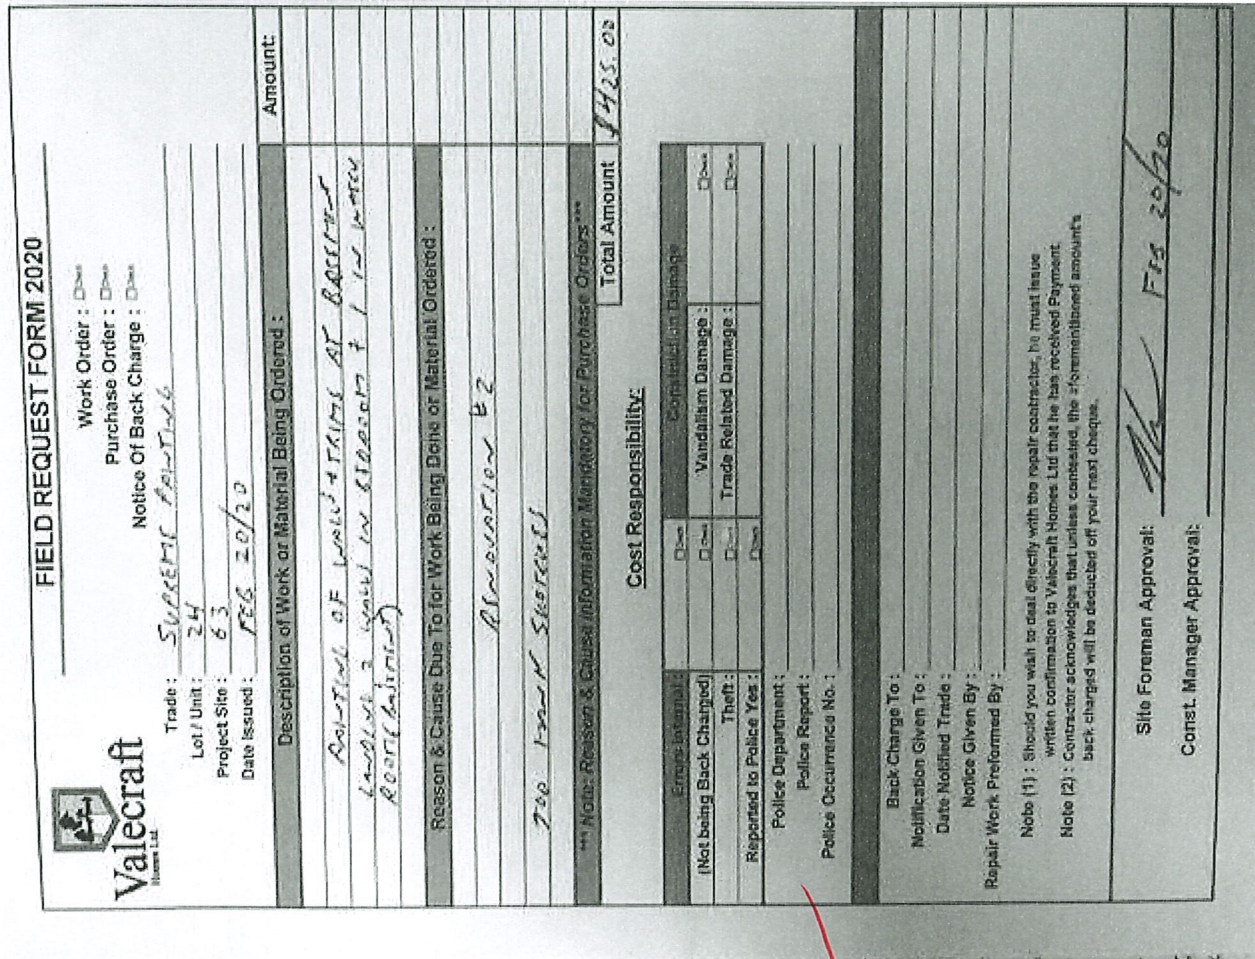 FIELD REQUEST FORM 2020
Valecraft
Homes Ltd.
Work Order :
Purchase Order :
Notice Of Back Charge :
Trade : SUPREME PAINTING
Lot / Unit : 24
Project Site : 63
Date Issued : FEB 20/20
Description of Work or Material Being Ordered : Amount:
PAINTING OF WALLS + TRIMS AT BASEMENT
LANDING 2 WALLS IN BEDROOM + 1 IN
ROOM (BASEMENT)
Reason & Cause Due To for Work Being Done or Material Ordered :
RENOVATION #2
TOO MANY
*** Note: Reason & Cause Information Mandatory for Purchase Orders***
Total Amount $425.00
Cost Responsibility:
Errors Internal : Construction Damage
(Not being Back Charged) Vandalism Damage :
Theft : Trade Related Damage :
Reported to Police Yes :
Police Department :
Police Report :
Police Occurrence No. :
Back Charge To :
Notification Given To :
Date Notified Trade :
Notice Given By :
Repair Work Preformed By :
Note (1) : Should you wish to deal directly with the repair contractor, he must issue
written confirmation to Valecraft Homes Ltd that he has received Payment
Note (2) : Contractor acknowledges that unless contested, the aforementioned amount's
back charged will be deducted off your next cheque.
Site Foreman Approval: FEB 20/20
Const. Manager Approval: